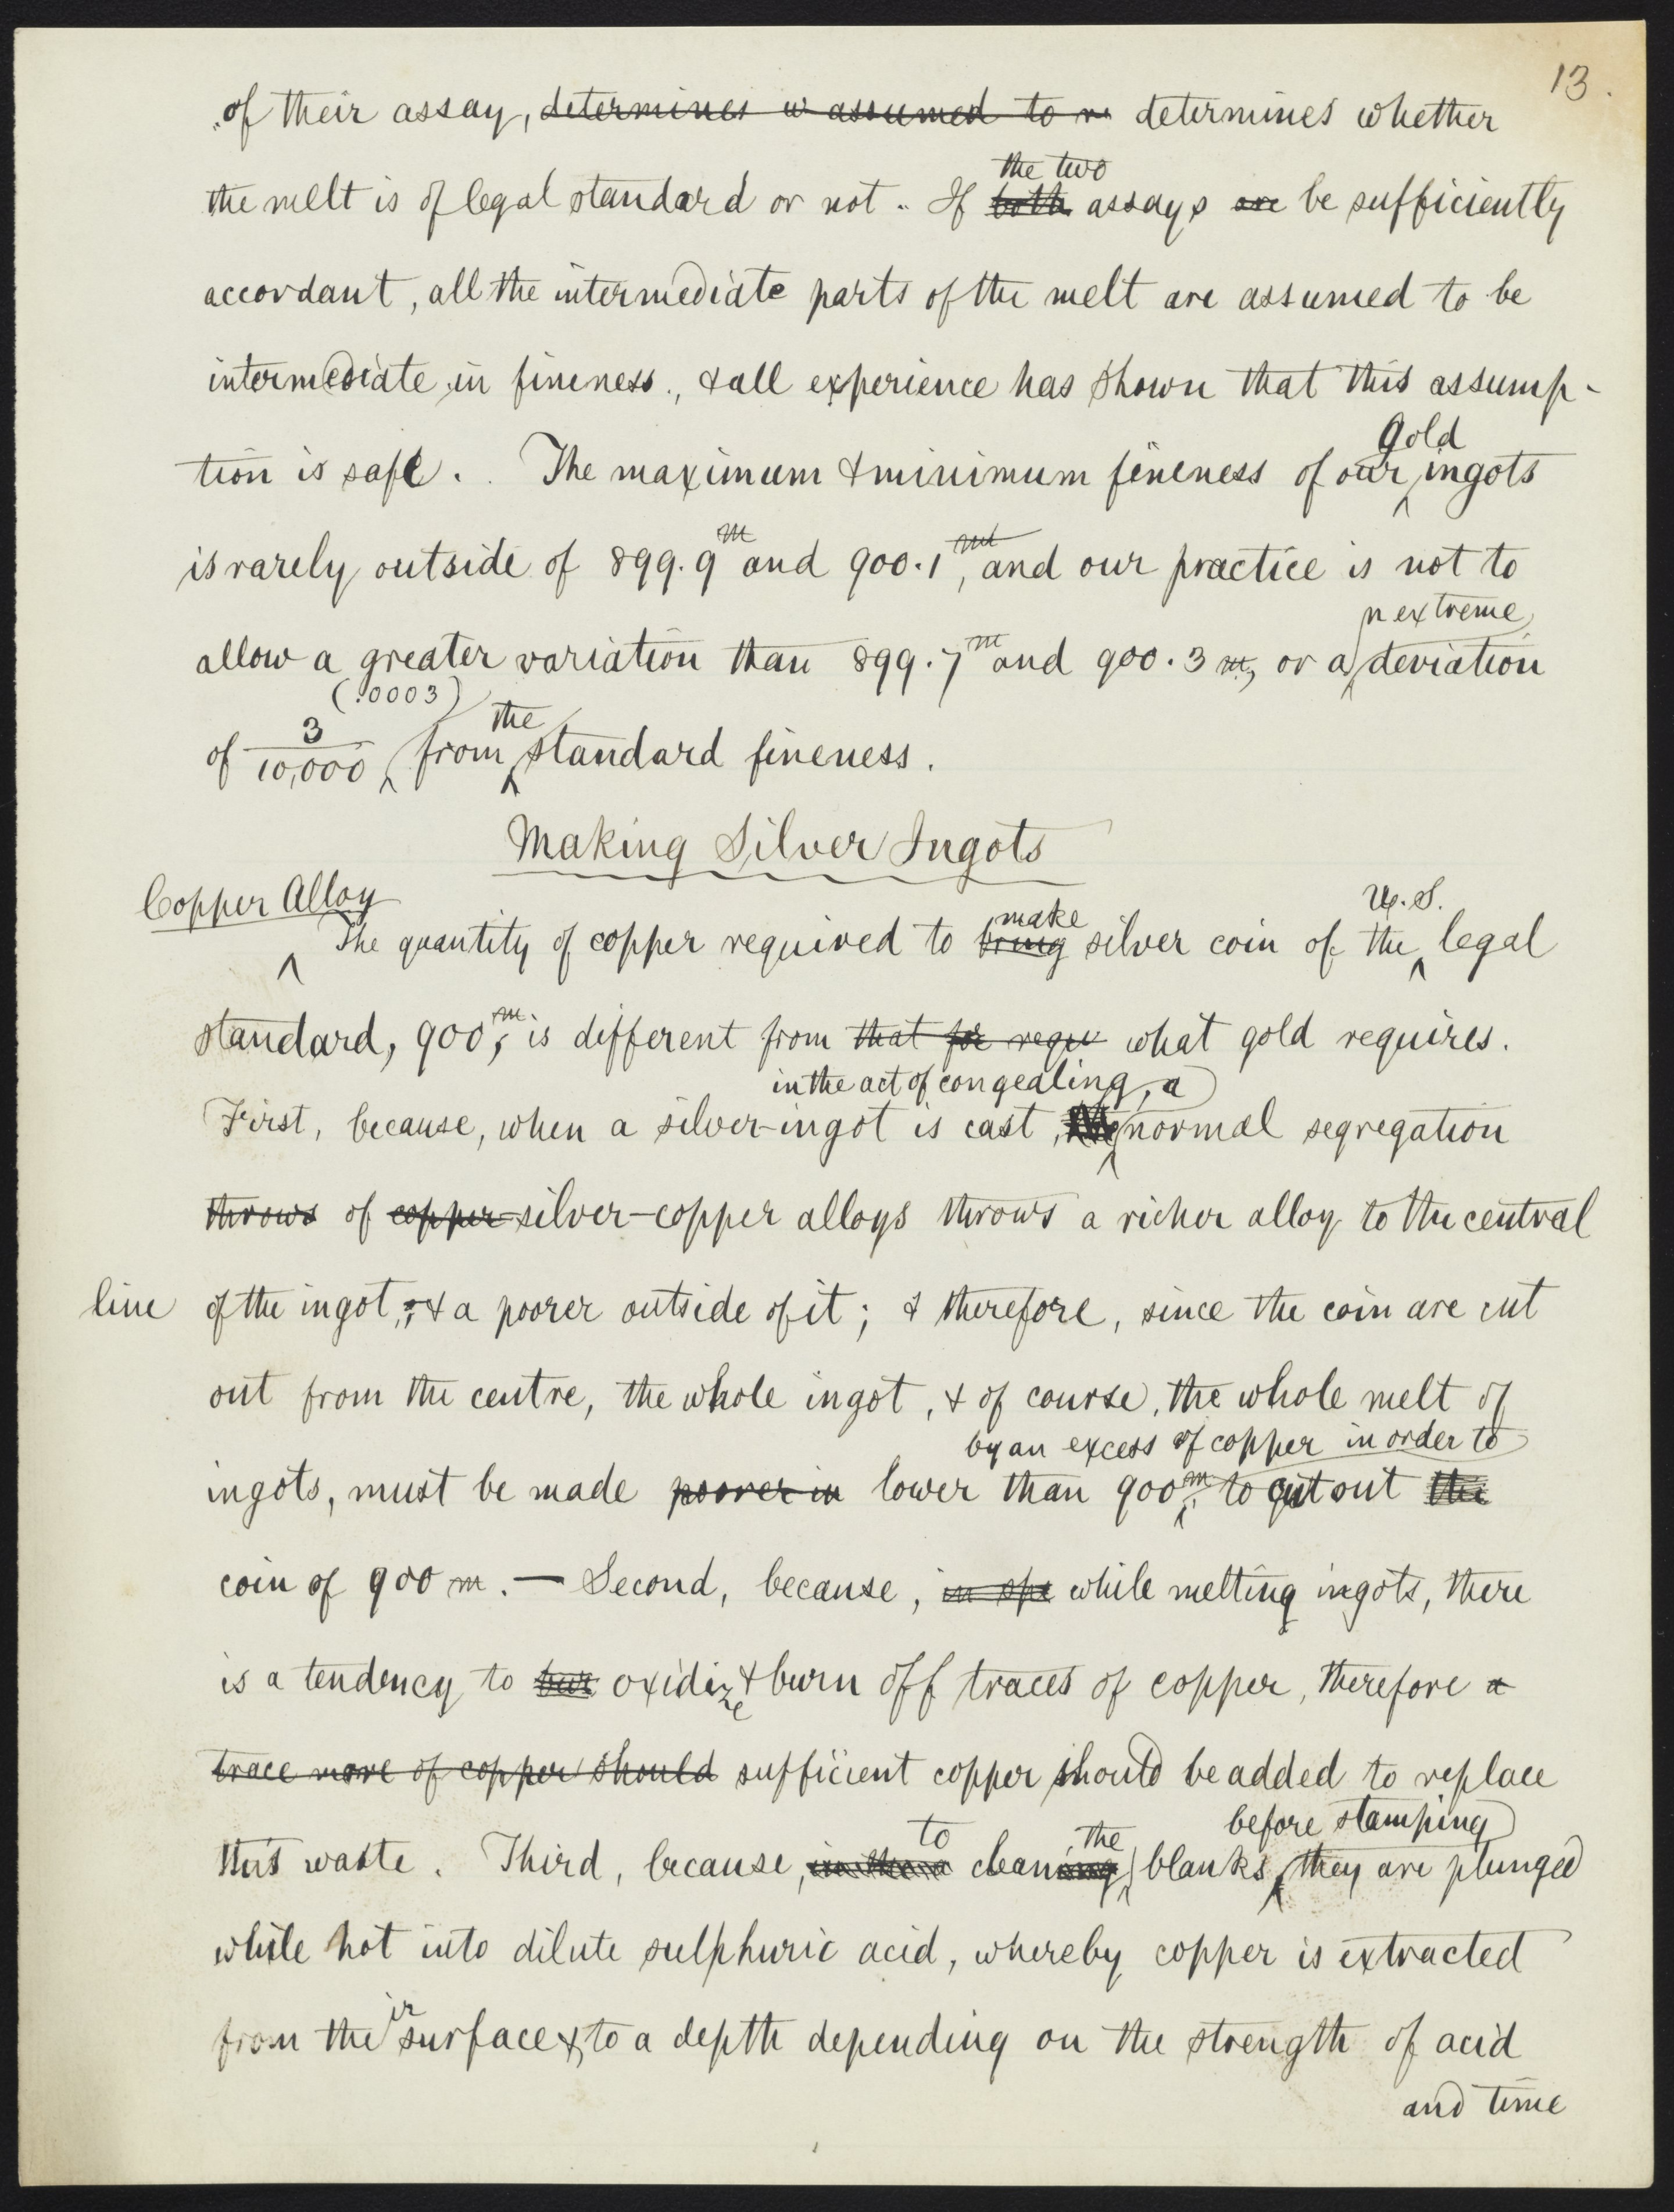 13.
of their assay, determines w assumed to determines whether
the two
the melt is of legal standard or not. If both assays are be sufficiently
accordant, all the intermediate parts of the melt are assumed to be
intermediate in fineness., & all experience has shown that this assump-
gold
tion is safe. The maximum & minimum fineness of our ingots
is rarely outside of 899.9 m and 900.1 m, and our practice is not to
n extreme
allow a greater variation than 899.7 m and 900.3 m, or a deviation
(.0003) the
of 3/10,000 from standard fineness.
Making Silver Ingots
Copper Alloy
make U.S.
The quantity of copper required to bring silver coin of the legal
standard, 900 m, is different from that for requ what gold requires.
in the act of congealing, a
First, because, when a silver-ingot is cast, normal segregation
throws of copper-silver-copper alloys throws a richer alloy to the central
line of the ingot, & a poorer outside of it; & therefore, since the coin are cut
out from the centre, the whole ingot, & of course, the whole melt of
by an excess of copper in order to
ingots, must be made poorer in lower than 900 m. to cut out the
coin of 900 m. — Second, because, in spe while melting ingots, there
is a tendency to bur oxidize & burn off traces of copper, therefore a
trace more of copper should sufficient copper should be added to replace
to the before stamping
this waste. Third, because, cleaning blanks, they are plunged
while hot into dilute sulphuric acid, whereby copper is extracted
from their surface & to a depth depending on the strength of acid
and time